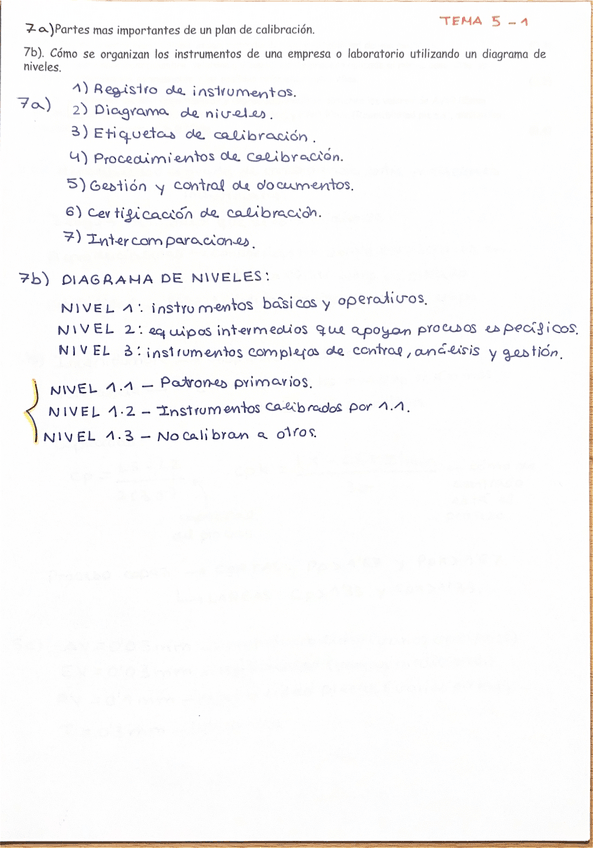 TEMA 5-1
7a) Partes mas importantes de un plan de calibración.
7b). Cómo se organizan los instrumentos de una empresa o laboratorio utilizando un diagrama de
niveles.
7a)
1) Registro de instrumentos.
2) Diagrama de niveles.
3) Etiquetas de calibración.
4) Procedimientos de calibración.
5) Gestión y control de documentos.
6) Certificación de calibración.
7) Intercomparaciones.
7b) DIAGRAMA DE NIVELES:
NIVEL 1: instrumentos básicos y operativos.
NIVEL 2: equipos intermedios que apoyan procesos específicos.
NIVEL 3: instrumentos complejos de control, análisis y gestión.
NIVEL 1.1 – Patrones primarios.
NIVEL 1.2 – Instrumentos calibrados por 1.1.
NIVEL 1.3 – No calibran a otros.